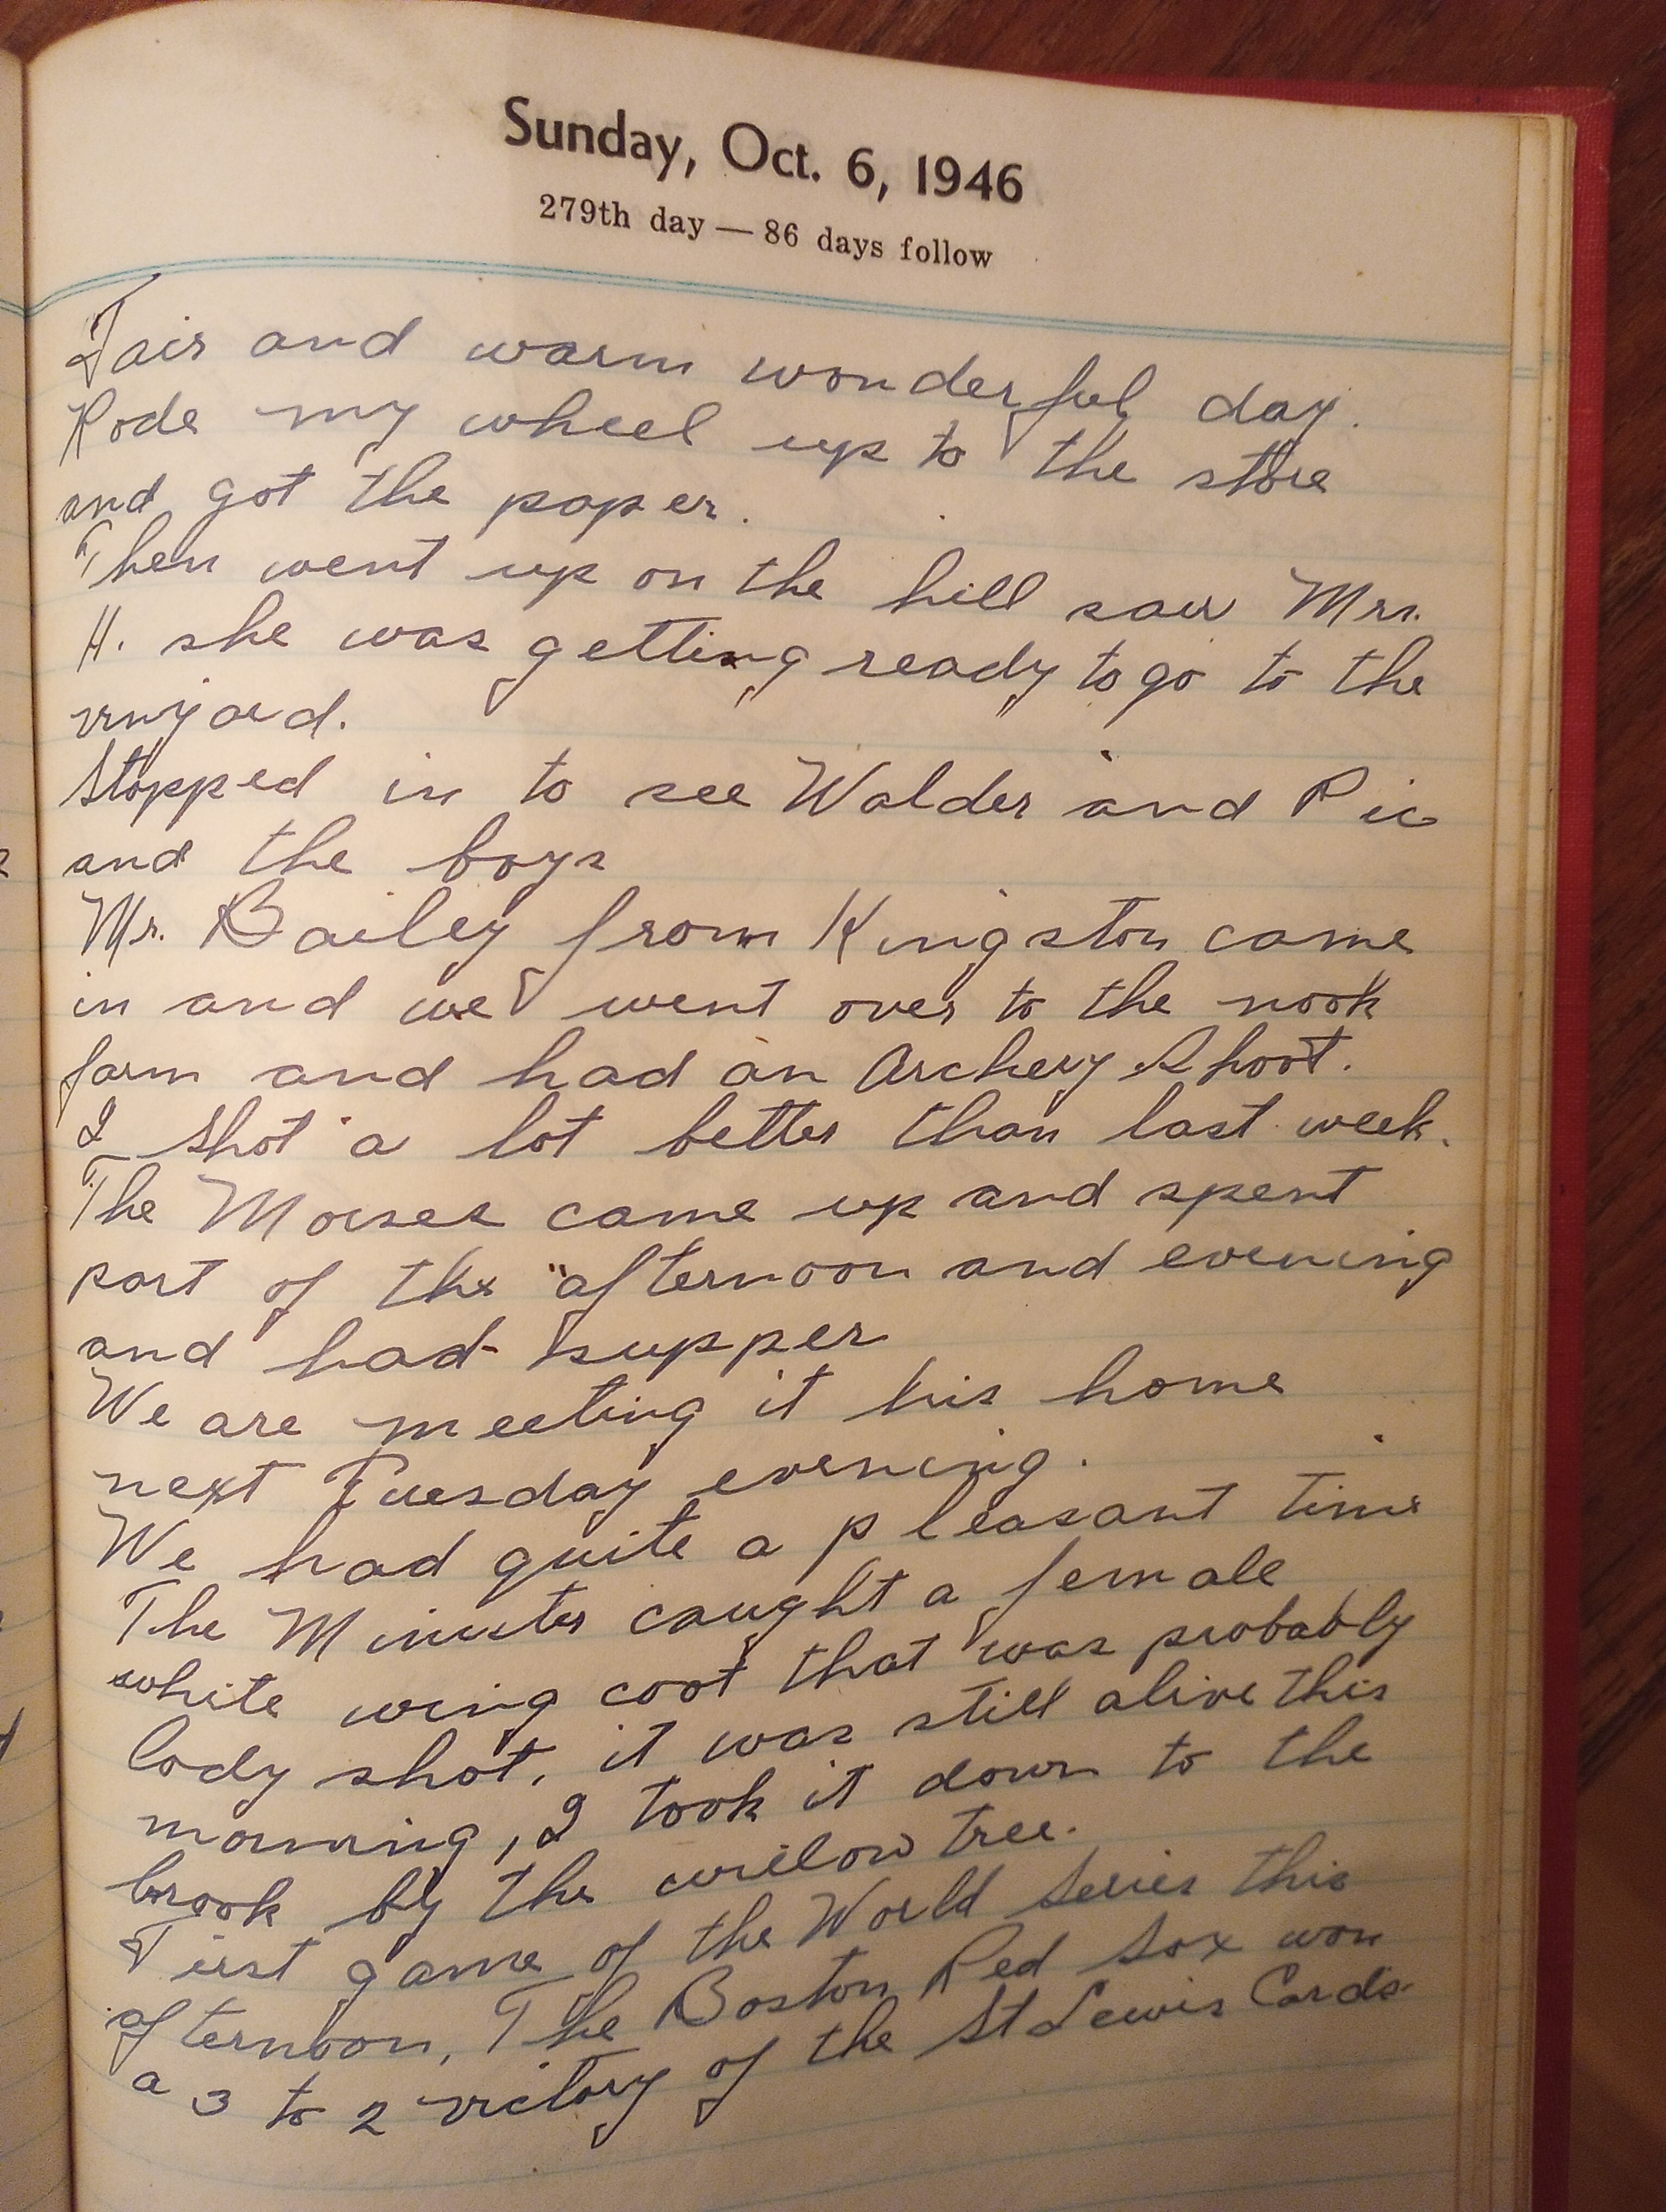 Sunday, Oct. 6, 1946
279th day — 86 days follow
Fair and warm wonderful day.
Rode my wheel up to the store
and got the paper.
Then went up on the hill saw Mrs.
H. she was getting ready to go to the
vinyard.
Stopped in to see Walder and Pic
and the boys
Mr. Bailey from Kingston came
in and we went over to the nook
farm and had an Archery Shoot.
I shot a lot better than last week.
The Morses came up and spent
part of the afternoon and evening
and had supper
We are meeting it his home
next Tuesday evening.
We had quite a pleasant time
The Minister caught a female
white wing coot that was probably
lody shot, it was still alive this
morning, I took it down to the
brook by the willow tree.
First game of the World Series this
afternoon, The Boston Red Sox won
a 3 to 2 victory of the St Lewis Cards